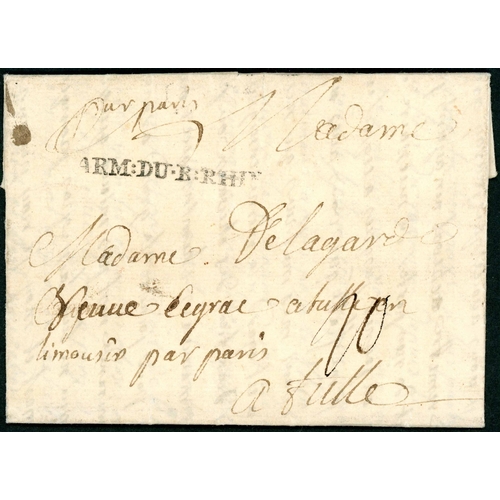 par paris
Madame
ARM:DU·B:RHIN
Madame Delagarde
Veuve Legrac a tulle en
limousin par paris
a tulle